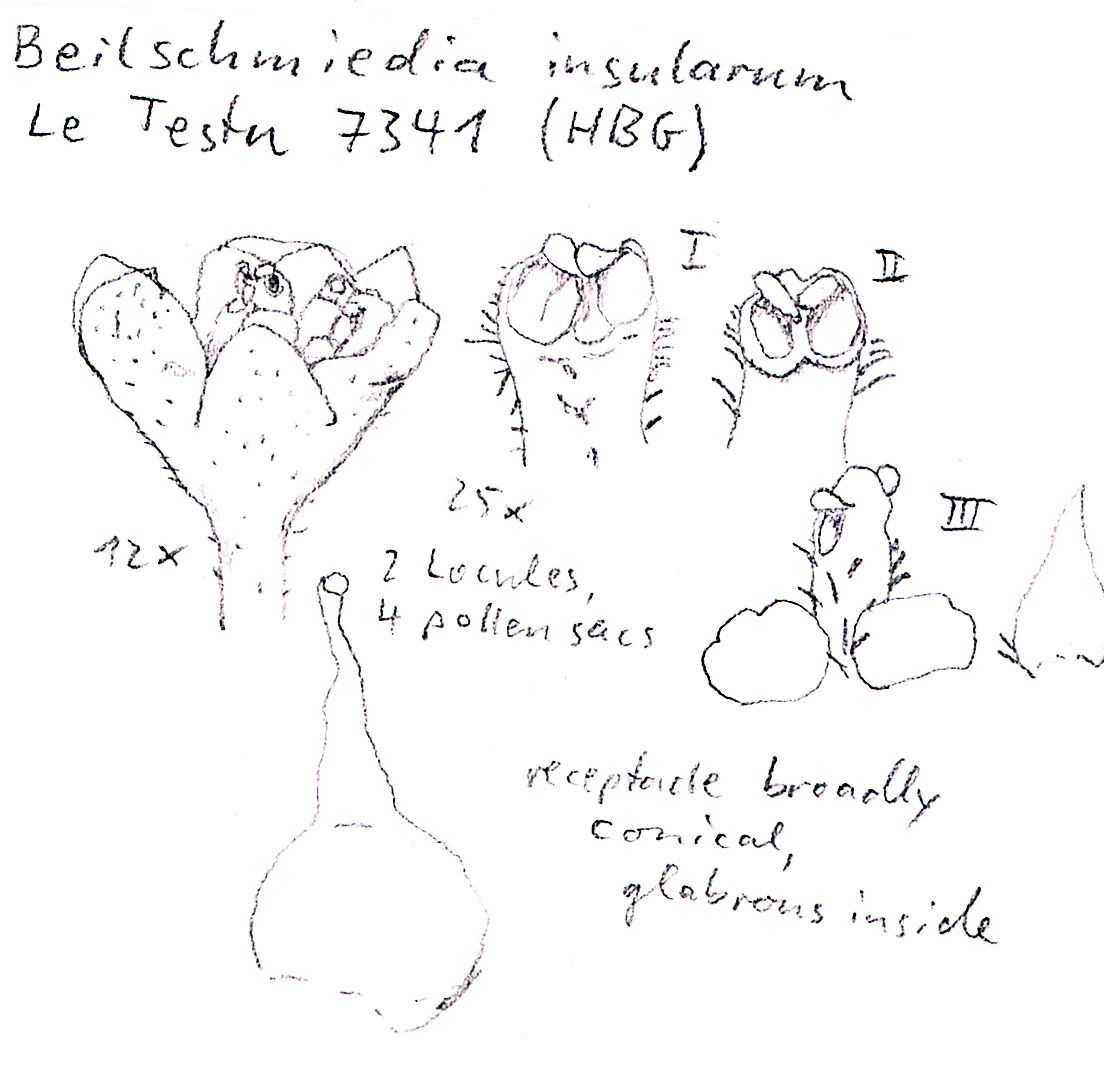 Beilschmiedia insularum
Le Testu 7341 (HBG)
I
II
25x
III
12x
2 Locules,
4 pollen sacs
receptacle broadly
conical,
glabrous inside